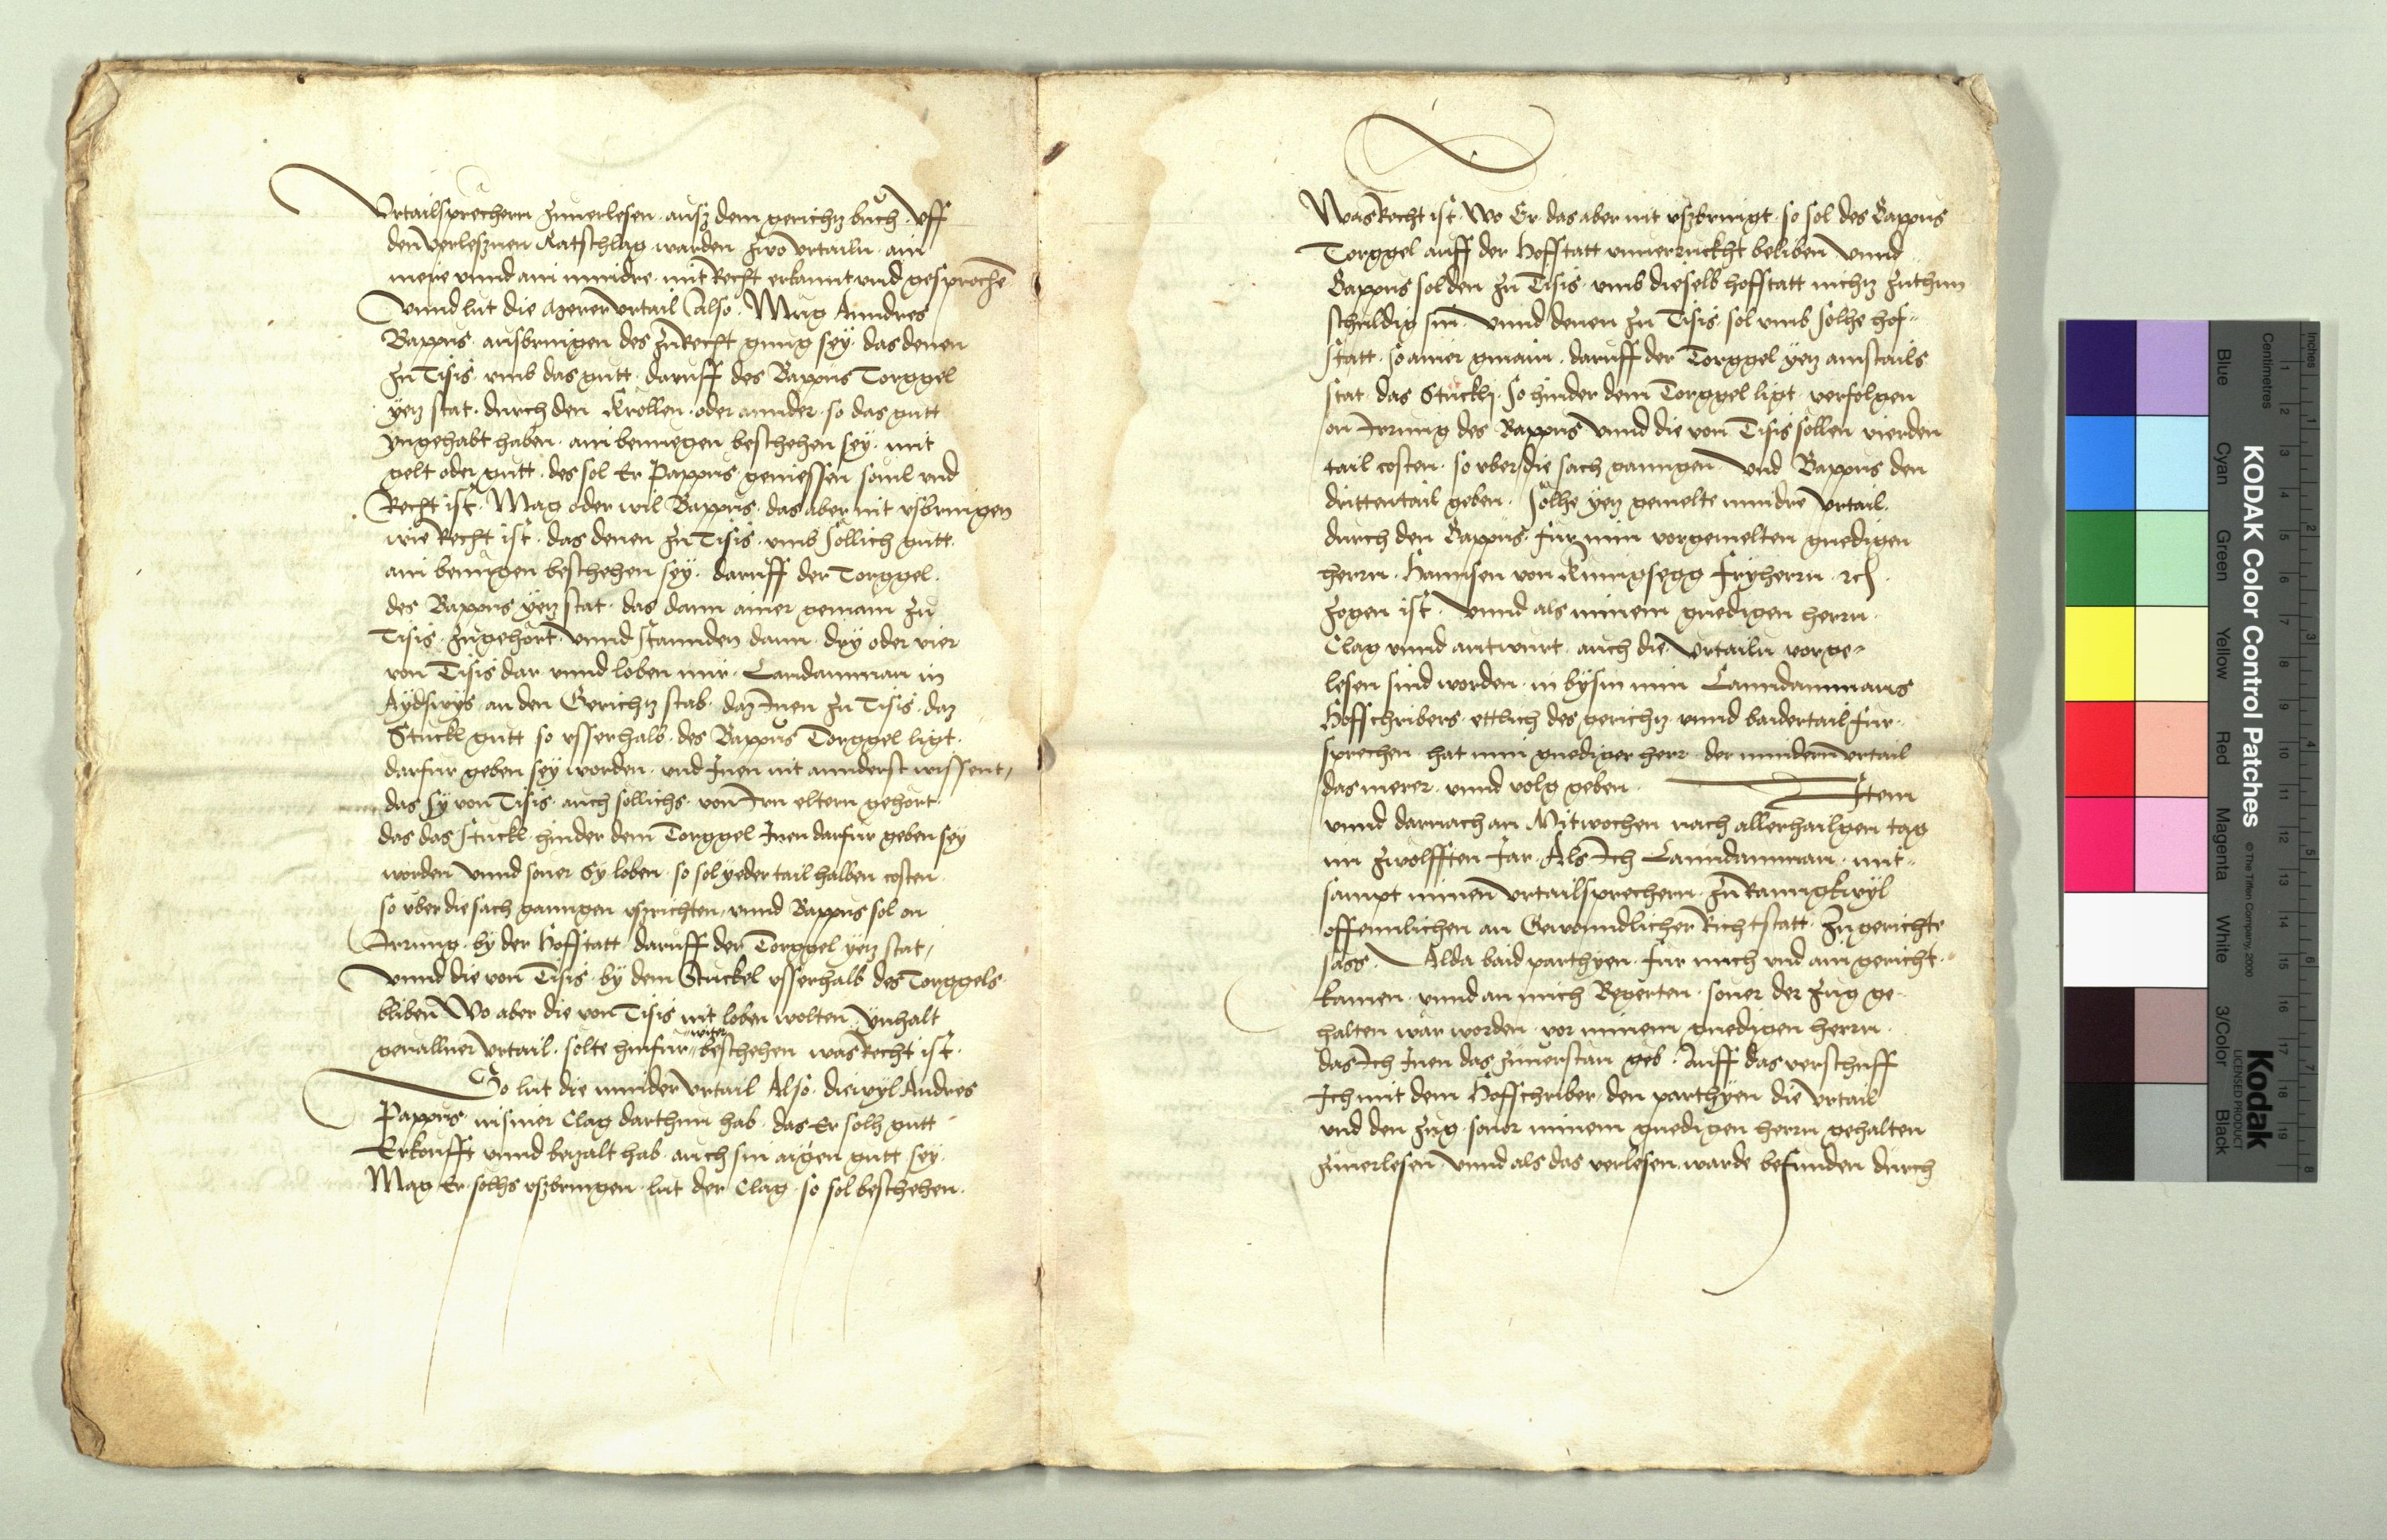 Vrtailsprechern zuuerlesen · ausz dem gerichtz buch · Vff
den verlesznen Ratschlag warden zwo vrtailn · ain
mere vnnd ain mindre · mit Recht erkannt vnd gesprochē
Vnnd lut die merer vrtail also · Mug Anndres
Bappus · ausbringen des zu Recht gnug sey · das denen
zu Tisis · vmb das gutt · daruff des Bappus Torggel
yetz stat · durch den Krollen · oder annder · so das gutt
yngehabt haben · ain benuegen beschehen sey · mit
gelt oder gutt · des sol Er Pappus geniessen souil vnd
Recht ist · Mag oder wil Bappus · das aber nit vsbringen
wie Recht ist · das denen zu Tisis · vmb sollich gutt
ain benugen beschehen sey · daruff der Torggel ·
des Bappus yetz stat · das dann ainer gemain zu
Tisis · zugehort · Vnnd stannden dann · dry oder vier
von Tisis dar vnnd loben mir · Landamman in
Aydswys · an den Gerichtz stab · daz Inen zu Tisis · daz
Stuckl gutt so vsserhalb · des Bappus Torggel ligt ·
darfur geben sey worden · vnd Inen nit annderst wissent,
das sy von Tisis · auch sollichs · von Irn eltern gehort
das das stuckl · hinder dem Torggel Inen darfur geben sey
worden Vnnd souer Sy loben · so sol yeder tail halben costen
so vber die sach ganngen vszrichten, vnnd Bappus sol on
Irrung · by der Hoffstatt daruff der Torggel yetz stat,
Vnnd die von Tisis · by dem Stuckel vsserhalb des Torggels
bliben Wo aber die von Tisis nit loben wolten · Ynhalt
geuallner vrtail · solte hinfur witer beschehen was Recht ist ·
So lut die minder vrtail Also · diewyl Andres
Pappus · in siner Clag darthun hab · das Er solh gutt
Erkoufft vnnd bezalt hab · auch sin aigen gutt sey
Mag Er solhs vszbringen · lut der Clag · so sol beschehen ·
Was Recht ist · Wo Er das aber nit vszbringt · so sol des Bappus
Torggel auff der Hoffstatt vnuerruckht beliben Vnnd
Bappus sol den zu Tisis · vmb dieselb hoffstatt nichtz zuthun
schuldig sin · Vnnd denen zu Tisis sol vmb solhe hof=
statt · so ainer gmain · daruff der Torggel yetz ainstails
stat · das Stucklj · so hinder dem Torggel ligt · verfolgen
on Irrung des Bappus Vnnd die von Tisis sollen vierden
tail costen · so vber die sach ganngen Vnd Bappus den
drittentail geben · Solhe yetz gemelte mindre vrtail
durch den Bappus fur min vorgemelten gnedigen
herrn · Hannsen von Kungsegg fryherrn · rc
zogen ist · Vnnd als minem gnedigen herrn ·
Clag vnnd antwurt auch die Vrtailn vorge=
lesen sind worden · in bysin min Lanndammans
Hoffschribers · ettlich des gerichtz vnnd baidertail fur=
sprechen · hat min gnediger herr der mindern vrtail
das merer · vnnd volg geben ·
Item
vnnd darnach an Mitwochen nach allerhailgen tag
im zwolfften Jar · Als Ich Lanndamman · mit=
sampt minen vrtailsprechern · zu Ranngkwyl
offennlichen an Gewonndlicher Richtstatt · zu gerichte
sass · Alda baid parthyen · fur mich vnd ain gericht ·
kamen · vnnd an mich Begerten · souer der zug ge=
halten war worden · vor minem gnedigen herrn ·
das Ich Inen das zuuerstan geb · Auff das verschuff
Ich mit dem Hoffschriber, den parthyen die Vrtail
vnd den zug · souor minem gnedigen herrn gehalten
zuuerlesen Vnnd als das verlesen warde befunden durch
KODAK Color Control Patches
© The Tiffen Company, 2000
Kodak
LICENSED PRODUCT
Blue Cyan Green Yellow Red Magenta White 3/Color Black
Centimetres
Inches
1 2 3 4 5 6 7 8 9 10 11 12 13 14 15 16 17 18 19
1 2 3 4 5 6 7 8